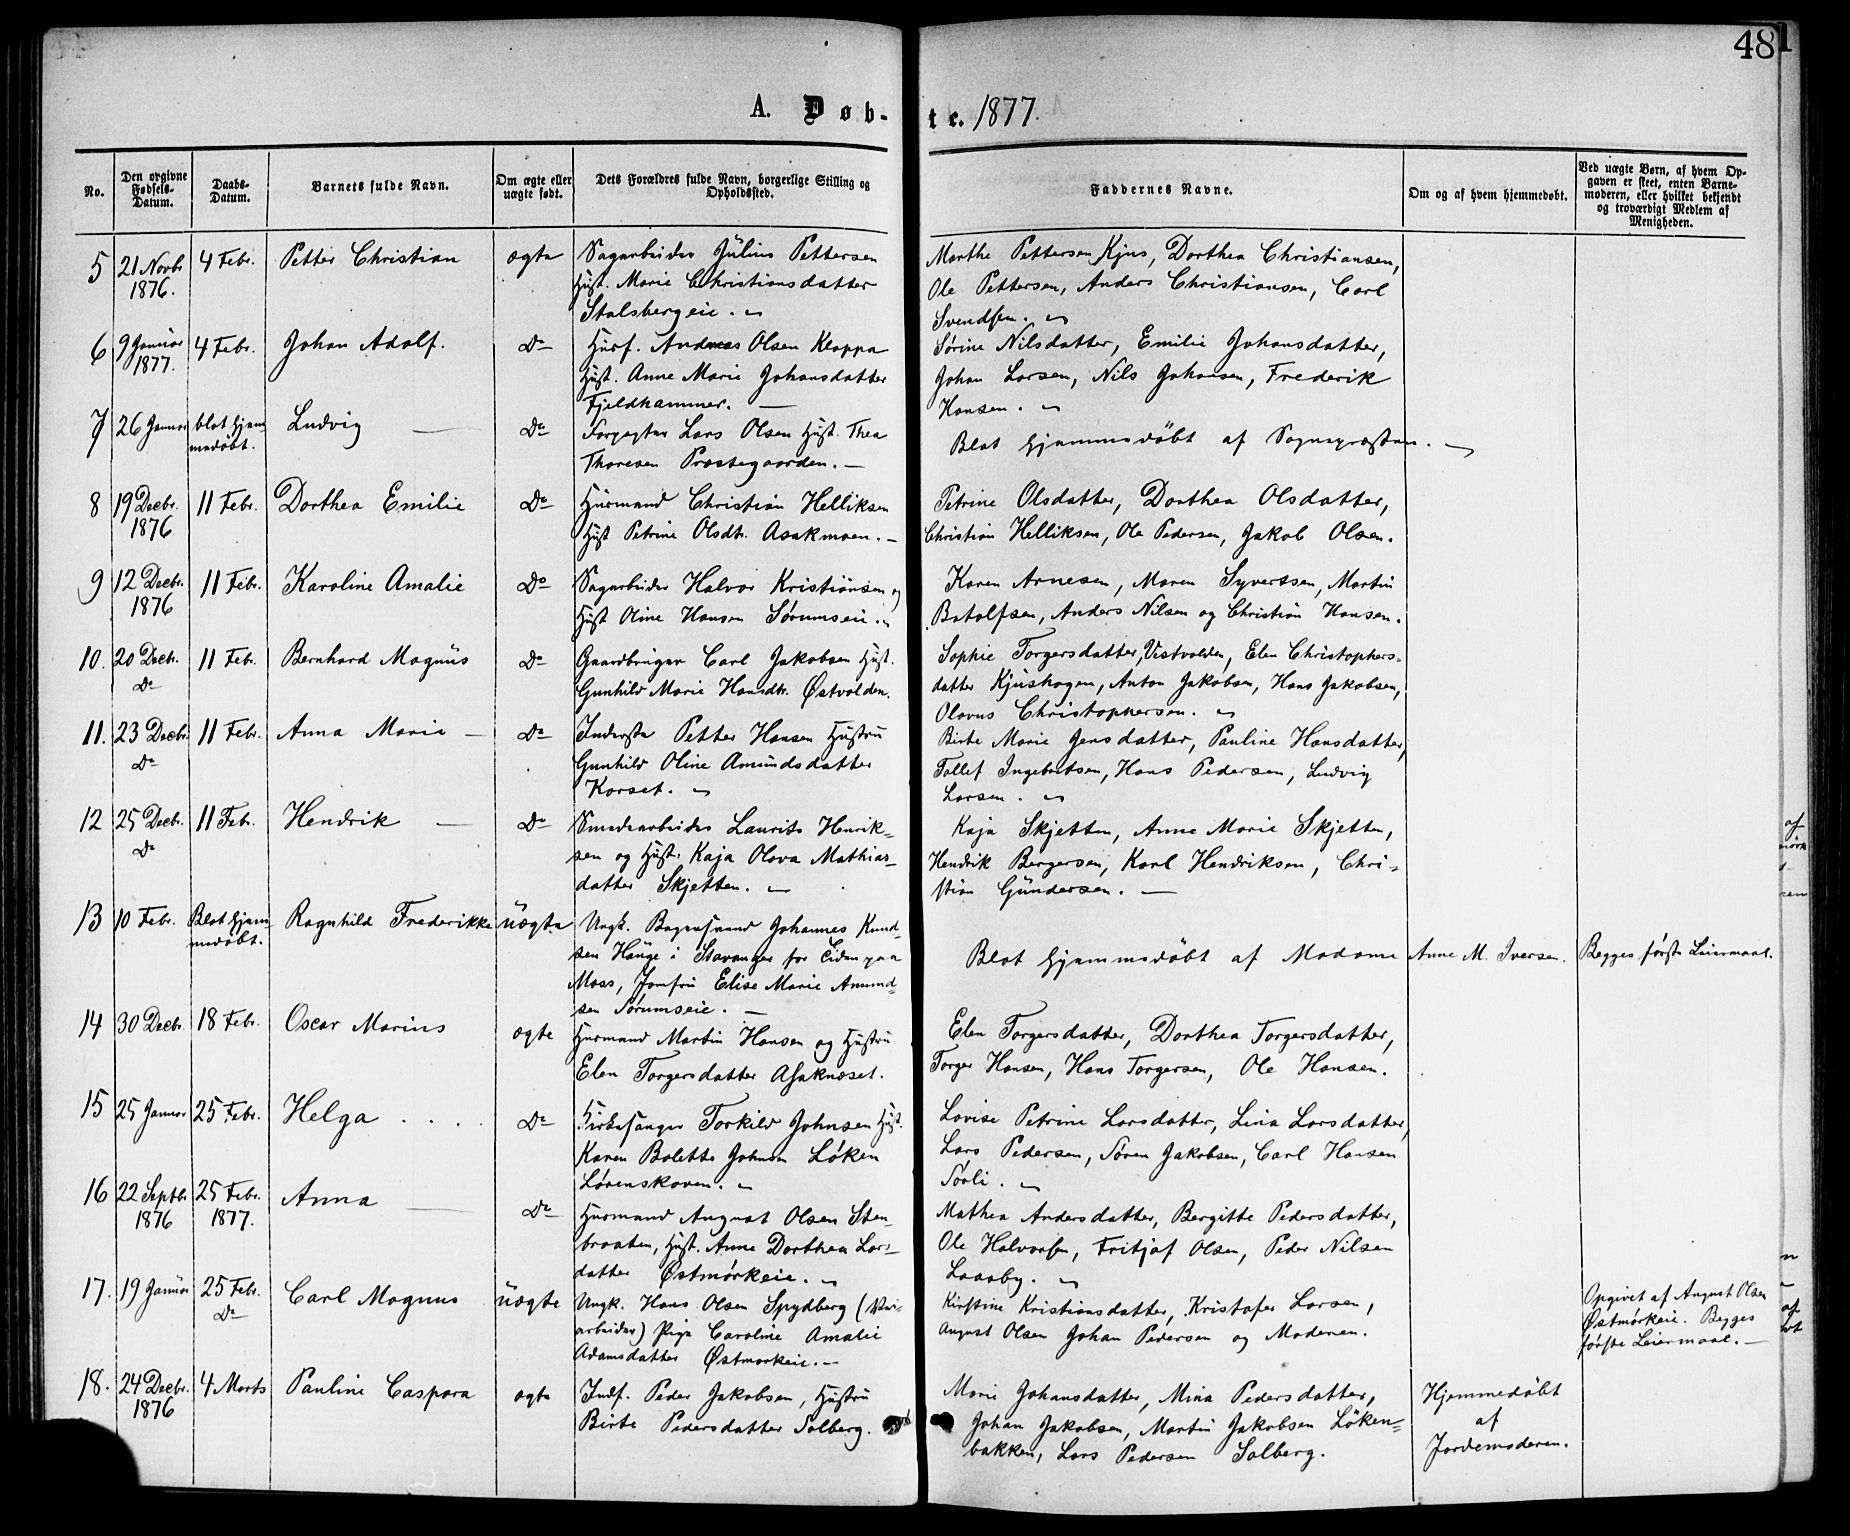 481
A. Døb-te. 1877.
No. | Den opgivne Fødsels-Datum. | Daabs-Datum. | Barnets fulde Navn. | Om ægte eller uægte født. | Dets Forældres fulde Navn, borgerlige Stilling og Opholdssted. | Faddernes Navne. | Om og af hvem hjemmedøbt. | Ved uægte Børn, af hvem Opgaven er skeet, enten Barnemoderen, eller hvilket bekjendt og troværdigt Medlem af Menigheden.
5 | 21 Novbr | 4 Febr. | Petter Christian | ægte | Sagarbeider Julius Pettersen | Marthe Pettersen Kjus, Dorthea Christiansen,
1876. | Hust. Marie Christiansdatter | Ole Pettersen, Anders Christiansen, Carl
Stalsbergeie. | Svendsen.
6 | 9 Januar | 4 Febr. | Johan Adolf. | Do | Husf. Andreas Olsen Kloppa | Sørine Nilsdatter, Emilie Johansdatter,
1877. | Hust. Anne Marie Johansdatter | Johan Larsen, Nils Johansen, Frederik
Fjeldhammer. | Hansen.
7 | 26 Januar | blot hjem- | Ludvig | Do | Forpagter Lars Olsen Hust. Thea | Blot hjemmedöbt af Sognepræsten.
medöbt. | Thoresen Præstegaarden.
8 | 19 Decbr. | 11 Febr. | Dorthea Emilie | Do | Husmand Christian Helliksen | Petrine Olsdatter, Dorthea Olsdatter,
1876 | Hust Petrine Olsdtr. Asakmoen. | Christian Helliksen, Ole Pedersen, Jakob Olsen.
9 | 12 Decbr. | 11 Febr. | Karoline Amalie | Do | Sagarbeider Halvor Kristiansen og | Karen Arnesen, Maren Syvertsen, Martin
1876 | Hust Oline Hansen Sørumseie. | Botolfsen, Anders Nilsen og Christian Hansen.
10. | 20 Decb. | 11 Feb. | Bernhard Magnus | Do | Gaardbruger Carl Jakobsen Hust. | Sophie Torgersdatter, Vestvolden, Elen Christophers-
Do | Gunhild Marie Hansdtr. Østvolden. | datter Kjushagen, Anton Jakobsen, Hans Jakobsen,
Olavus Christophersen.
11. | 23 Decbr. | 11 Febr. | Anna Marie | Do | Inderste Petter Hansen Hustru | Birte Marie Jensdatter, Pauline Hansdatter,
Do | Gunhild Oline Amundsdatter | Tollef Ingebritsen, Hans Pedersen, Ludvig
Korset. | Larsen.
12 | 25 Decbr. | 11 Febr. | Hendrik | Do | Smedearbeider Laurits Henrik- | Kaja Skjetten, Anne Marie Skjetten,
Do | sen og Hust. Kaja Olava Mathias- | Hendrik Bergersen, Karl Hendriksen, Chri-
datter Skjetten. | stian Gundersen.
13 | 10 Febr. | Blot hjem- | Ragnhild Frederikke | uægte | Ungk. Bagersvend Johannes Knud- | Blot hjemmedöbt af Madame | Anne M. Iversen. | Begges første Leiermaal.
medöbt. | sen Hauge i Stavanger for Tiden paa
Moss, Jomfru Elise Marie Amund-
sen Sørumseie.
14 | 30 Decbr. | 18 Febr. | Oscar Marius | ægte | Husmand Martin Hansen og Hustru | Elen Torgersdatter, Dorthea Torgersdatter,
Elen Torgersdatter Asaknæset. | Torger Hansen, Hans Torgersen, Ole Hansen.
15 | 25 Januar | 25 Febr. | Helga | Do | Kirkesanger Torkild Johnsen Hust. | Lovise Petrine Larsdatter, Lina Larsdatter,
Karen Bolette Johnsen Løken | Lars Pedersen, Sören Jakobsen, Carl Hansen
Lørenskoven. | Sørli.
16 | 22 Septbr. | 25 Febr. | Anna | Do | Husmand August Olsen Sten- | Mathea Andersdatter, Bergitte Pedersdatter,
1876 | 1877. | braaten, Hust. Anne Dorthea Lars- | Ole Halvorsen, Fritjof Olsen, Peder Nilsen
datter Østmörkeie. | Laasby.
17. | 19 Januar | 25 Febr. | Carl Magnus | uægte | Ungk. Hans Olsen Spydberg (Vei- | Kirstine Kristiansdatter, Kristofer Larsen, | Opgivet af August Olsen
Do | arbeider) Pige Caroline Amalie | August Olsen Johan Pedersen og Moderen. | Østmörkeie. Begges
Adamsdatter Østmorkeie. | første Leiermaal.
18. | 24 Decbr. | 4 Marts | Pauline Caspara | ægte | Indf. Peder Jakobsen, Hustru | Marie Johansdatter, Mina Pedersdatter, | Hjemmedöbt
1876 | Birte Pedersdatter Solberg. | Johan Jakobsen, Martin Jakobsen Löken- | af
bakken, Lars Pedersen Solberg. | Jordemoderen.